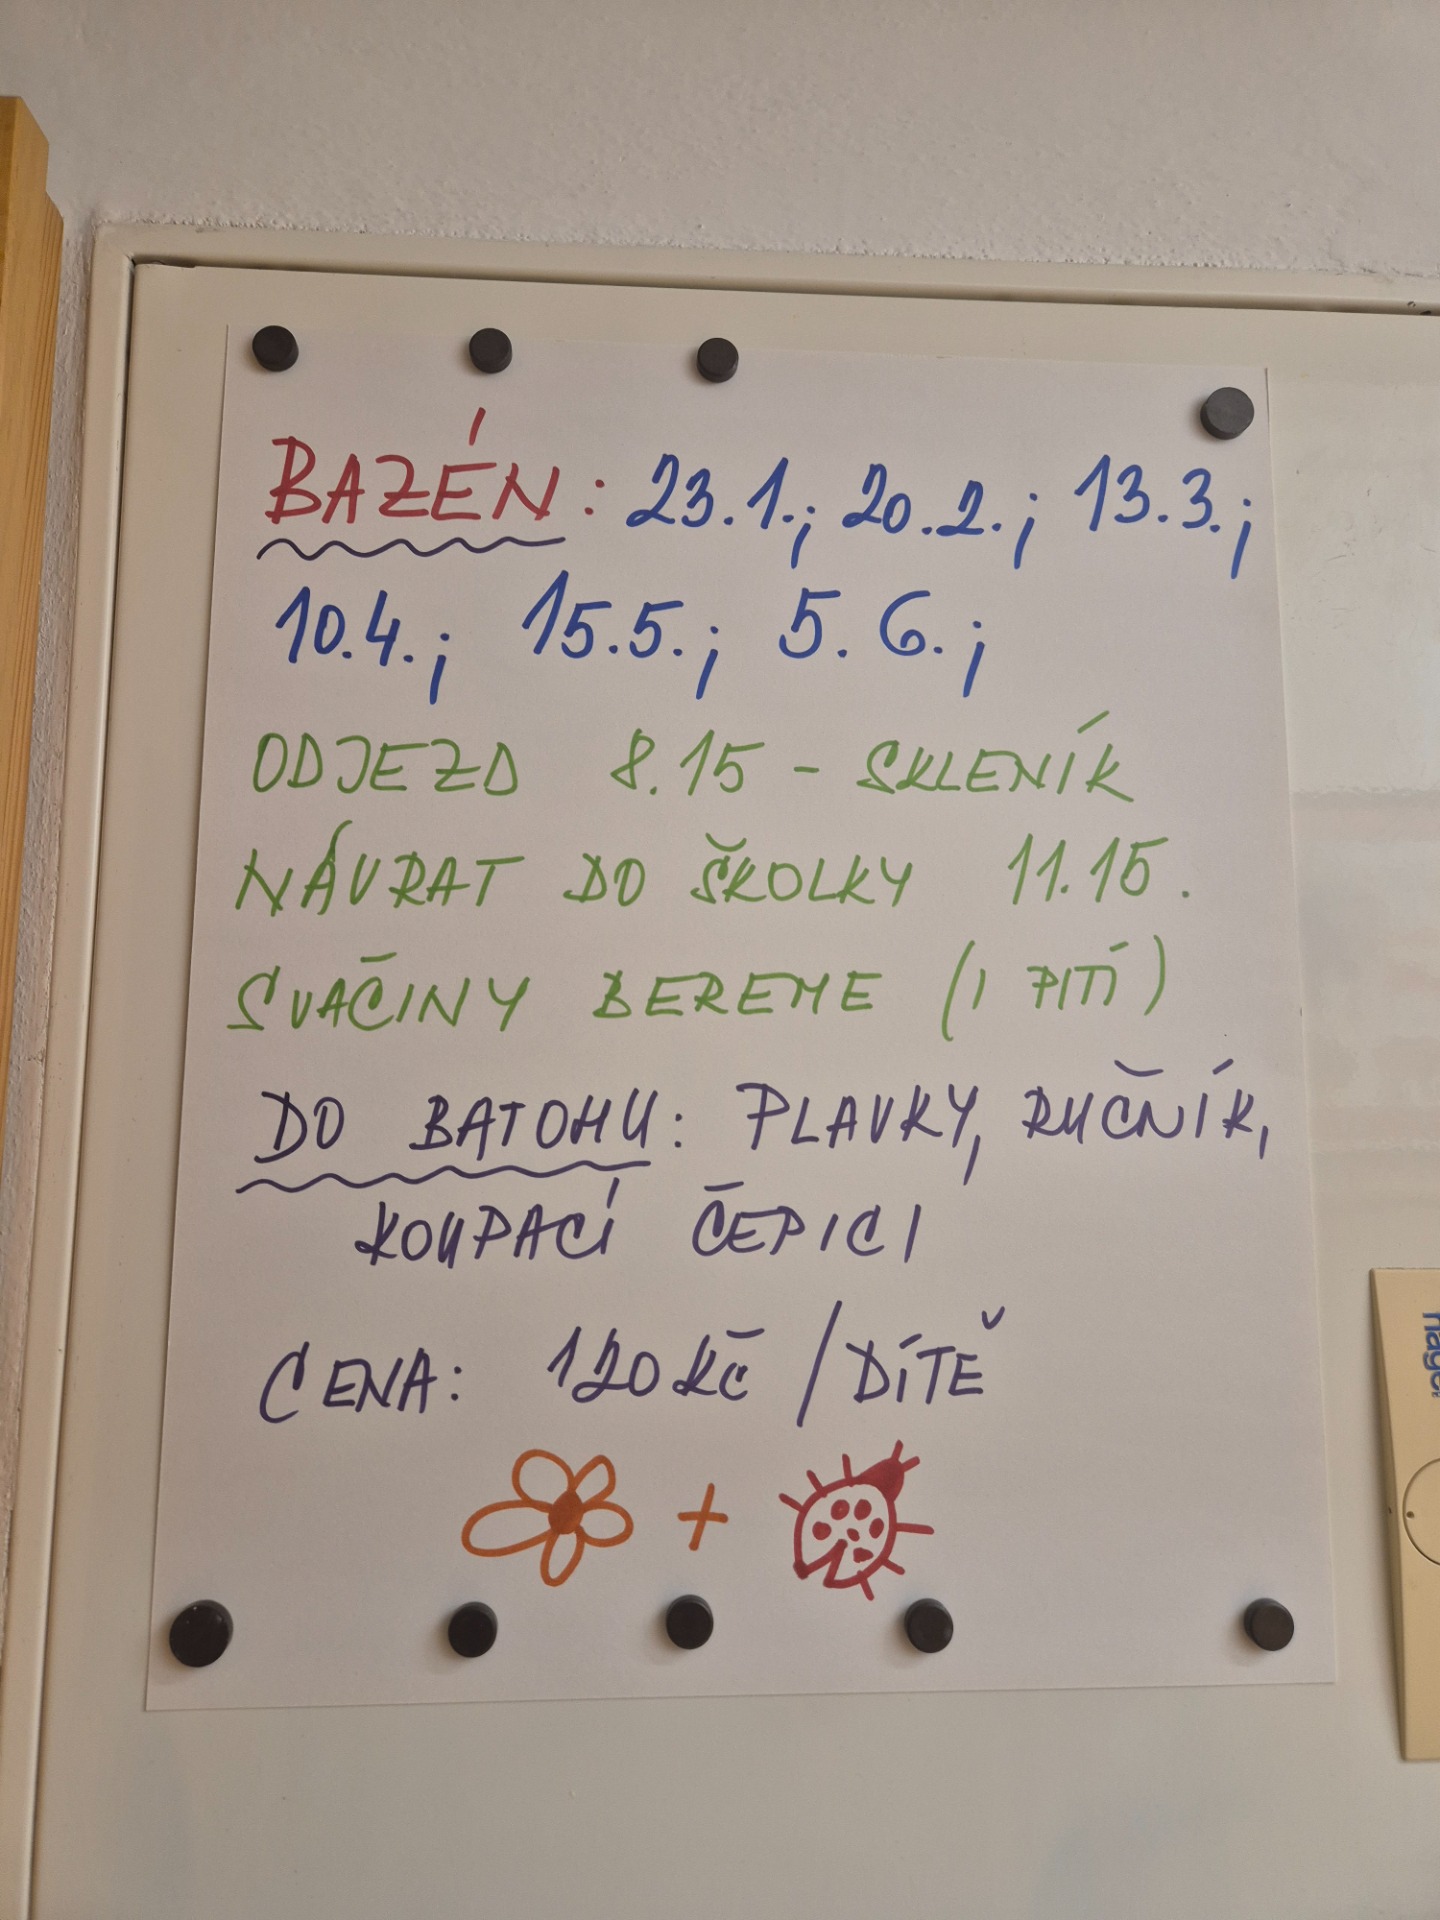 BAZÉN: 23.1.; 20.2.; 13.3.;
10.4.; 15.5.; 5.6.;
ODJEZD 8.15 - SKLENÍK
NÁVRAT DO ŠKOLKY 11.15.
SVAČINY BEREME (I PITÍ)
DO BATOHU: PLAVKY, RUČNÍK,
KOUPACÍ ČEPICI
CENA: 120 KČ / DÍTĚ
+
hager